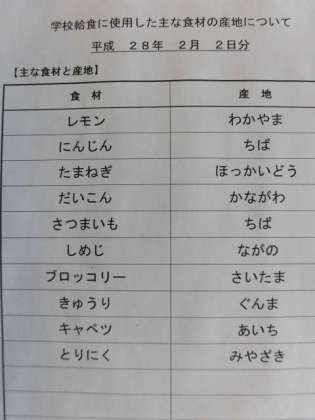 学校給食に使用した主な食材の産地について
平成 28年 2月 2日分
【主な食材と産地】
食 材 産 地
レモン わかやま
にんじん ちば
たまねぎ ほっかいどう
だいこん かながわ
さつまいも ちば
しめじ ながの
ブロッコリー さいたま
きゅうり ぐんま
キャベツ あいち
とりにく みやざき